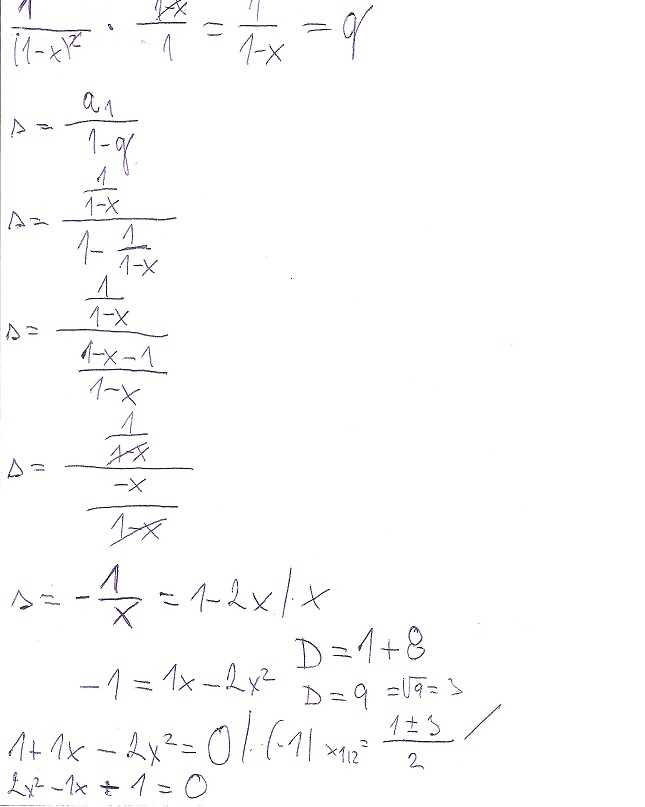 1/(1-x)² · (1-x)/1 = 1/(1-x) = q
s = a₁/(1-q)
s = (1/(1-x))/(1 - 1/(1-x))
s = (1/(1-x))/((1-x-1)/(1-x))
s = (1/(1-x))/(-x/(1-x))
s = -1/x = 1-2x /· x
D = 1+8
-1 = 1x - 2x²
D = 9 = √9 = 3
1+1x - 2x² = 0 /·(-1) x1/2 = (1±3)/2
2x² - 1x - 1 = 0